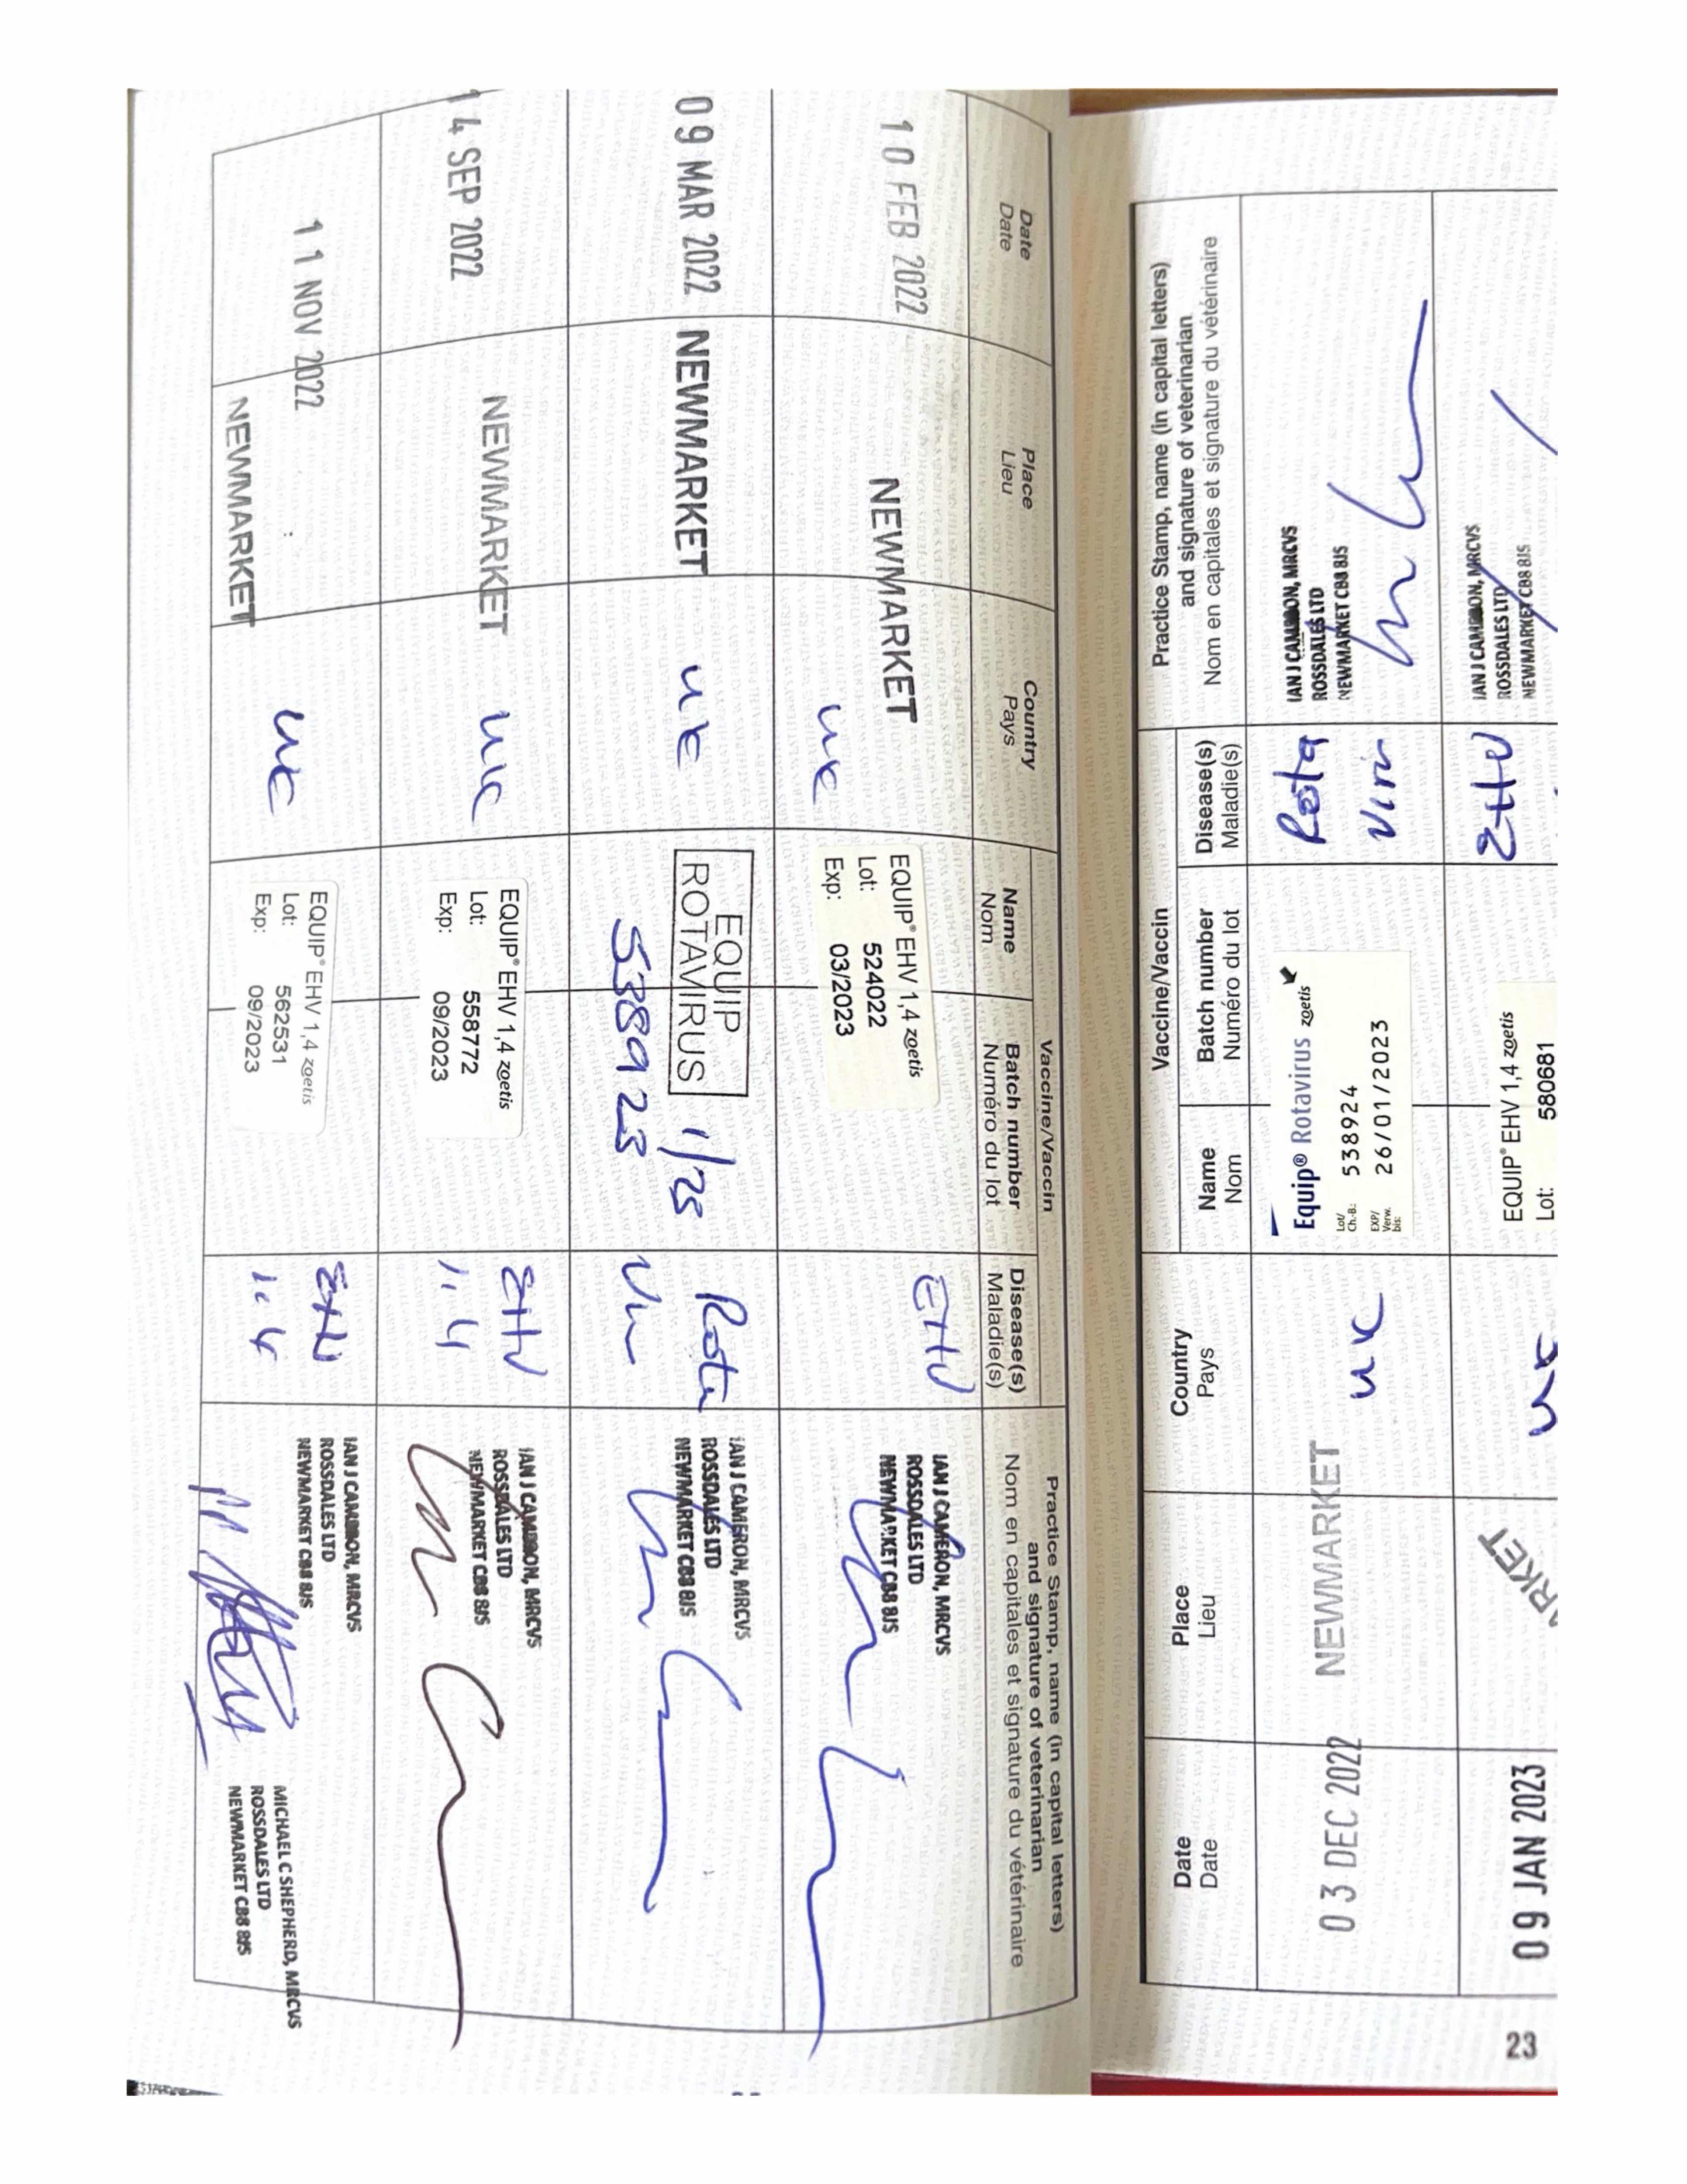 Date
Date
Place
Lieu
Country
Pays
Vaccine/Vaccin
Name
Nom
Batch number
Numéro du lot
Disease(s)
Maladie(s)
Practice Stamp, name (in capital letters)
and signature of veterinarian
Nom en capitales et signature du vétérinaire
10 FEB 2022
NEWMARKET
UK
EQUIP® EHV 1,4 zoetis
Lot: 524022
Exp: 03/2023
EHV
IAN J CAMERON, MRCVS
ROSSDALES LTD
NEWMARKET CB8 8JS
09 MAR 2022
NEWMARKET
UK
EQUIP
ROTAVIRUS
1/23
538923
Rota
Vir
IAN J CAMERON, MRCVS
ROSSDALES LTD
NEWMARKET CB8 8JS
14 SEP 2022
NEWMARKET
UK
EQUIP® EHV 1,4 zoetis
Lot: 558772
Exp: 09/2023
EHV
1.4
IAN J CAMERON, MRCVS
ROSSDALES LTD
NEWMARKET CB8 8JS
11 NOV 2022
NEWMARKET
UK
EQUIP® EHV 1,4 zoetis
Lot: 562531
Exp: 09/2023
EHV
1.4
IAN J CAMERON, MRCVS
ROSSDALES LTD
NEWMARKET CB8 8JS
MICHAEL C SHEPHERD, MRCVS
ROSSDALES LTD
NEWMARKET CB8 8JS
Date
Date
Place
Lieu
Country
Pays
Vaccine/Vaccin
Name
Nom
Batch number
Numéro du lot
Disease(s)
Maladie(s)
Practice Stamp, name (in capital letters)
and signature of veterinarian
Nom en capitales et signature du vétérinaire
03 DEC 2022
NEWMARKET
UK
Equip® Rotavirus zoetis
Lot/
Ch.-B.: 538924
EXP/
Verw.
bis: 26/01/2023
Rota
Virus
IAN J CAMERON, MRCVS
ROSSDALES LTD
NEWMARKET CB8 8JS
09 JAN 2023
RKET
UK
EQUIP® EHV 1,4 zoetis
Lot: 580681
EHV
IAN J CAMERON, MRCVS
ROSSDALES LTD
NEWMARKET CB8 8JS
23